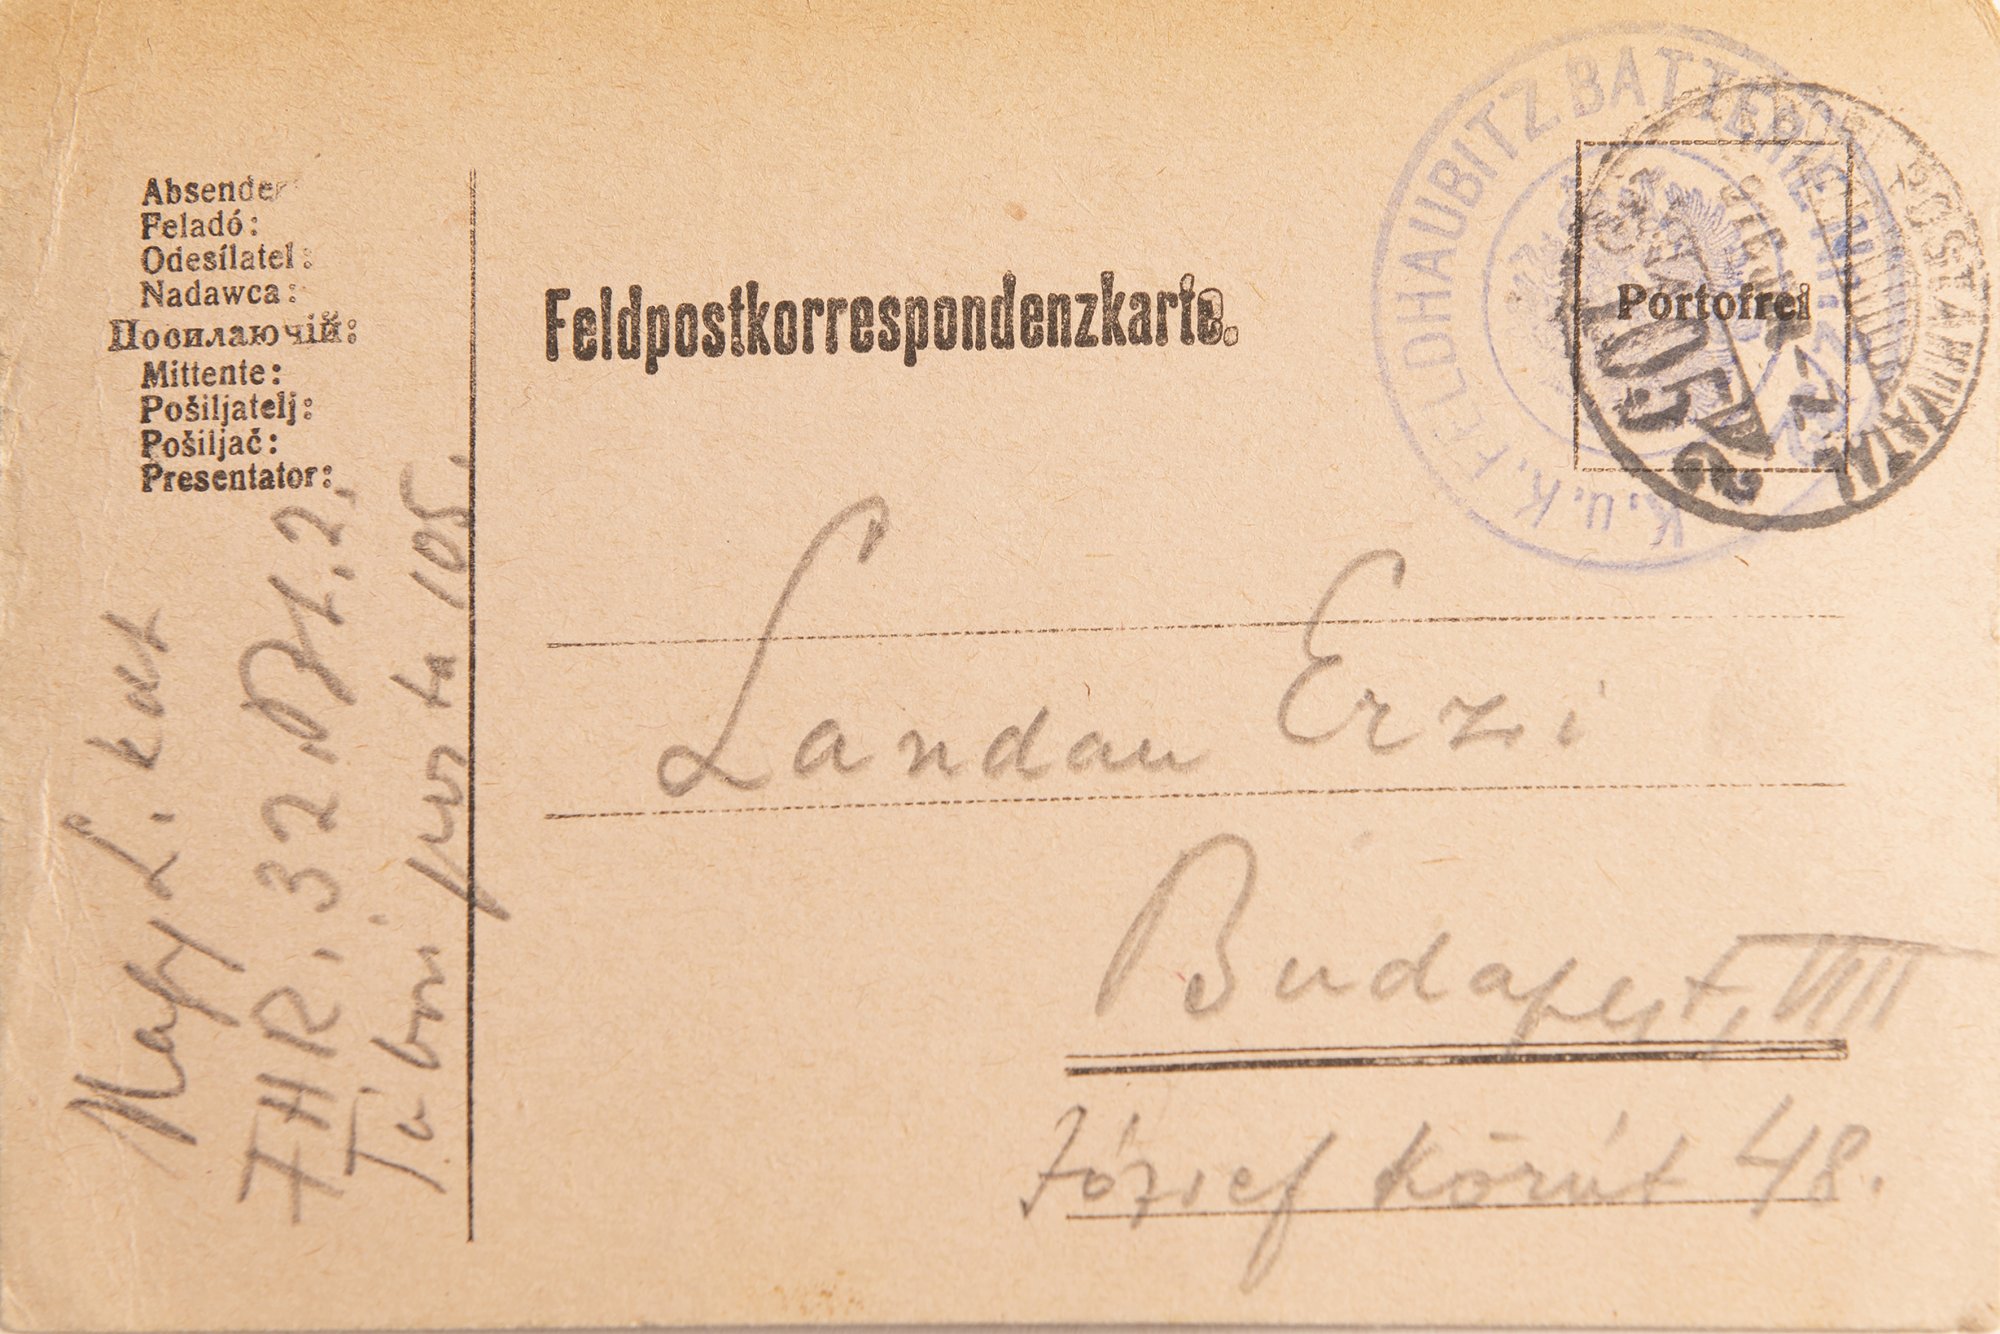 Absender
Feladó:
Odesílatel:
Nadawca:
Посилаючій:
Mittente:
Pošiljatelj:
Pošiljač:
Presentator:
Nagy L. kat
FHR. 32. 2.
Tábori posta 105.
Feldpostkorrespondenzkarte.
K.u.K. FELDHAUBITZ BATTERIE
POSTAHIVATAL
TÁBORI
105
Portofrei
Landau Erzi
Budapest, VIII
József körút 48.